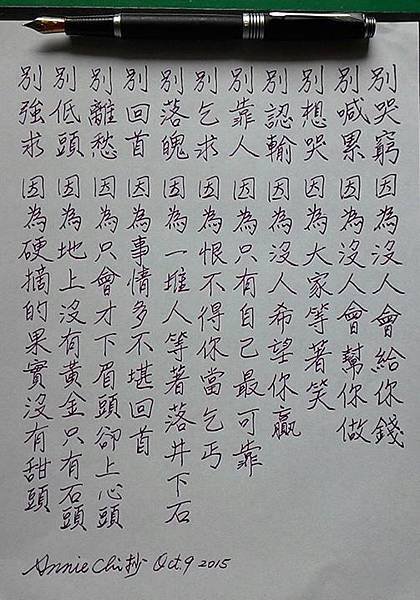 別哭窮 因為沒人會給你錢
別喊累 因為沒人會幫你做
別想哭 因為大家等著笑
別認輸 因為沒人希望你贏
別靠人 因為只有自己最可靠
別乞求 因為恨不得你當乞丐
別落魄 因為一堆人等著落井下石
別回首 因為事情多不堪回首
別離愁 因為只會才下眉頭卻上心頭
別低頭 因為地上沒有黃金只有石頭
別強求 因為硬摘的果實沒有甜頭
Annie Chi抄 Oct.9 2015